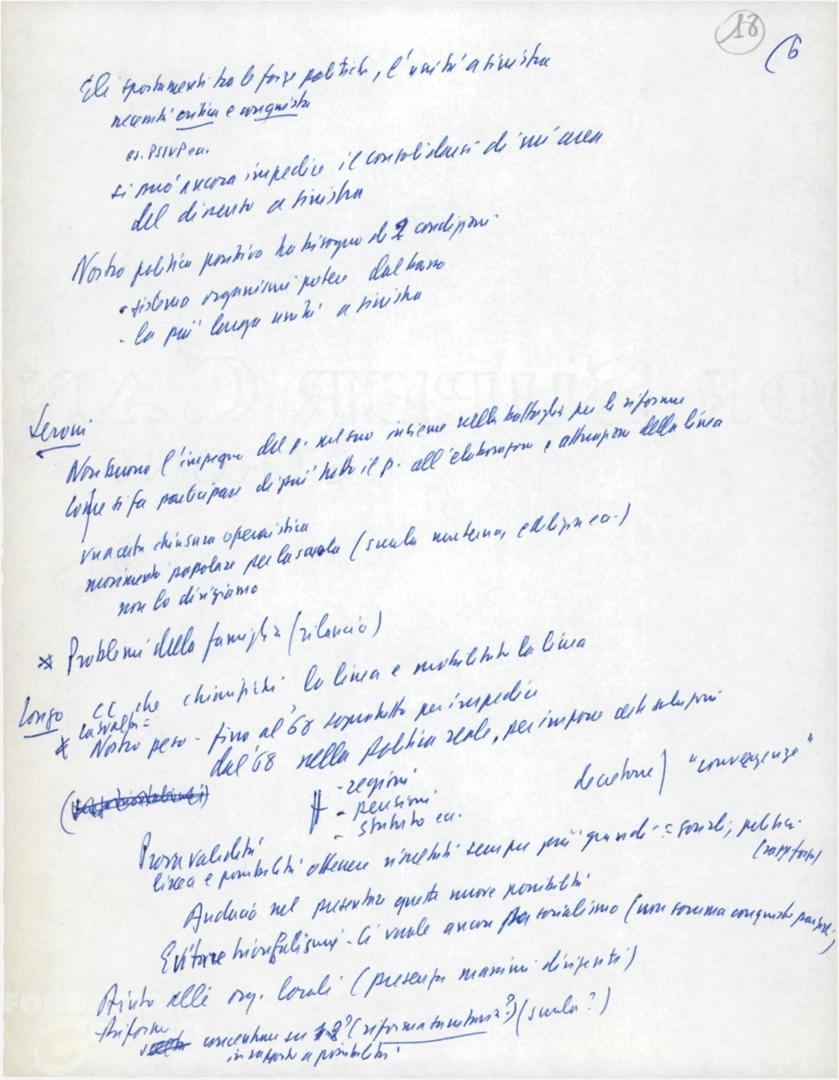 18
6
Gli spostamenti tra le forze politiche, l'unità a sinistra
necessità critica e conquista
es. PSIUP ecc.
si può ancora impedire il consolidarsi di un'area
del dissenso a sinistra
Nostra politica positiva ha bisogno di 2 condizioni
- sistema organismi potere dal basso
- la più larga unità a sinistra
Seroni
Non buono l'impegno del p. nel suo insieme nella battaglia per le riforme
Come si fa partecipare di più tutto il p. all'elaborazione e attuazione della linea
una certa chiusura operaistica
movimento popolare per la scuola (scuola materna, edilizia ecc.)
non lo dirigiamo
* Problemi della famiglia (rilancio)
Longo CC che chiarifichi la linea e mobilitato la linea
* Nostro peso - fino al '68 soprattutto per impedire
dal '68 nella politica reale, per imporre certe soluzioni
- regioni
- pensioni
- statuto ecc.
"convergenze"
Prova validità
linea e possibilità ottenere risultati sempre più grandi = sociali, politici
(rapp. forza)
Audacia nel presentare queste nuove possibilità
Evitare trionfalismi - Ci vuole ancora per socialismo (non somma conquiste parziali)
Aiuto alle org. locali (presenza massimi dirigenti)
Riforme
concentrare su 1-2? (riforma tributaria?) (scuola?)
in rapporto a possibilità